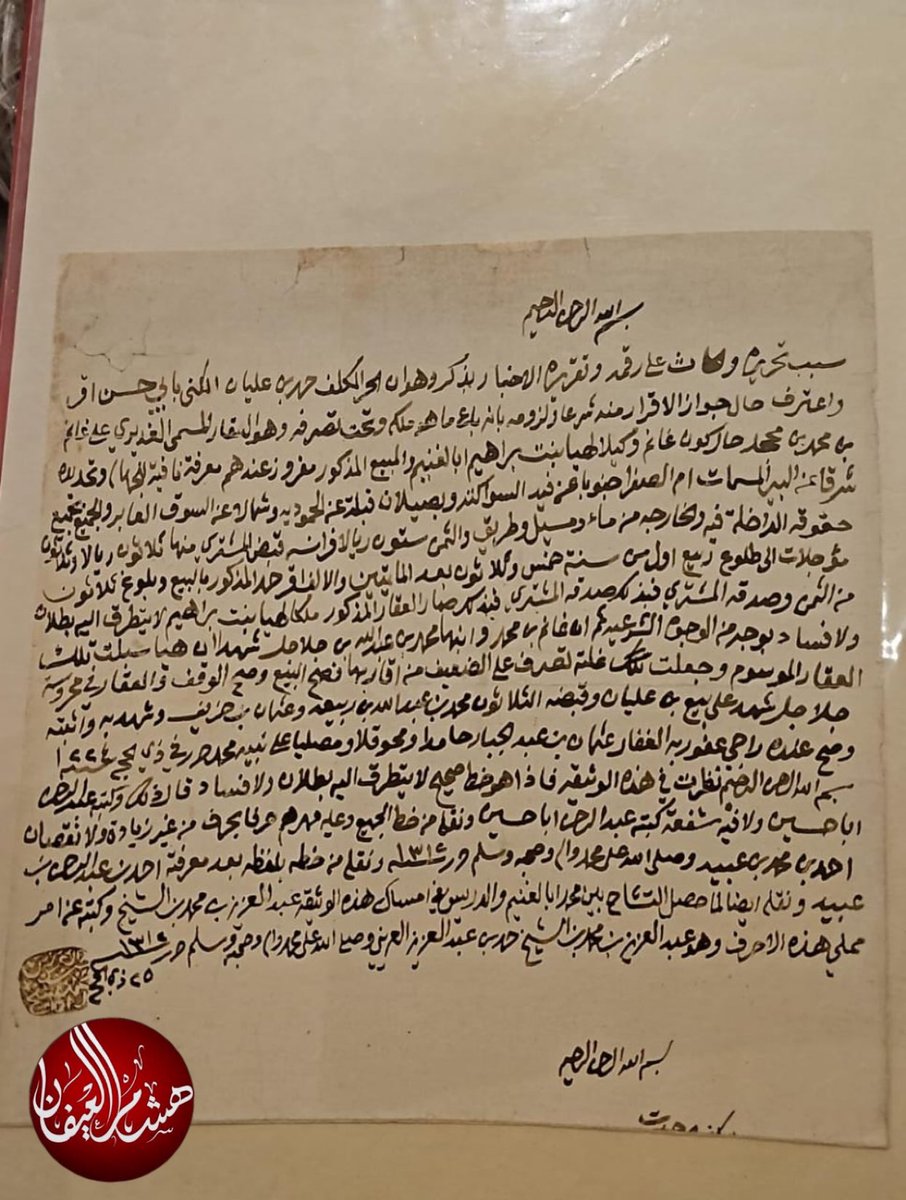 بسم الله الرحمن الرحيم
سبب تحريره و على رقمه وتقريره الاخبار بذكر وهو ان الحر المكلف حمد بن عليان المكنى بابي حسن اقر
واعترف حال جواز الاقرار منه شرعا ولزومه بانه باع ما هو ملكه وتحت تصرفه وهو العقار المسمى الغديري على غانم
بن محمد بن محمد حال كون غانم وكيلا لهيا بنت براهيم ابالغنيم والمبيع المذكور مفروز عندهم معرفة نافية للجهالة وتحده
شرقا عن البير المسمات ام الصفر جنوبا عن قبلة عن الحموديه وشمال عن السوق العابر والجميع بجميع
حقوقه الداخلة فيه والخارجه من ماء ومسيل وطريق والثمن ستون ريالا فرانسه قبض المشتري منها ثلاثون ريالا وثلاثون
مؤجلات الى طلوع ربيع اول من سنة خمس وثلاثون بعد المايتين والالف اقر حمد المذكور بالبيع وبلوغ ثلاثون
من الثمن وصدقه المشتري فبذلك صار العقار المذكور ملكا لهيا بنت براهيم لا يتطرف اليه بطلان
ولا فساد بوجه من الوجوه الشرعيه ثم ان غانم بن محمد وابنها محمد بن عبدالله بن جلاجل شهدا ان هيا سبلت تلك
العقار الموسوم وجعلت غلته تصرف على الضعيف من اقاربها فصح البيع وصح الوقف في العقار في محروسة
جلاجل شهد على بيع بن عليان وقبضه الثلاثون محمد بن عبدالله بن ربيعه وعثمان بن وشهد به واثبته
وصح عنده راجي عفو ربه الغفار عثمان بن عبد الجبار حامدا ومحوقلا ومصليا على نبيه محمد حرر في ذي الحج
بسم الله الرحمن الرحيم نظرت في هذه الوثيقه فاذا هو خط صحيح لا يتطرف اليه بطلان ولا فساد قال ذلك وكتبه عبد الرحمن
اباحسين ولا فيه شفعة كتبه عبد الرحمن اباحسين ونقله من خط الجميع وعليه مهرهم حرفا بحرف من غير زيادة ولا نقصان
احمد بن محمد بن عبيد وصلى الله على محمد واله وصحبه وسلم ١٣١٤ ونقله من خطه بلفظه بعد معرفة احمد بن عبد الرحمن بن
عبيد ونقله ايضا لما حصل التشاح بين محمد ابالغنيم والدريس في امساك هذه الوثيقة عبد العزيز بن محمد بن الشيخ وكتبه عن امر
مملي هذه الاحرف وهو عبد العزيز بن محمد بن الشيخ حمد بن عبد العزيز العريني وصلى الله على محمد واله وصحبه وسلم حرر ١٣١٤
٢٥ ذي الحج
بسم الله الرحمن الرحيم
هشام العيفان